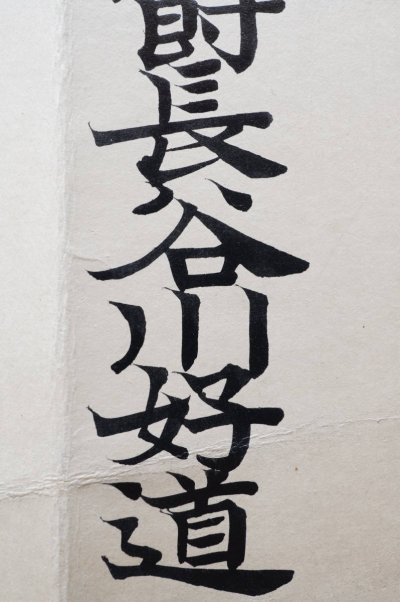 爵長谷川好道